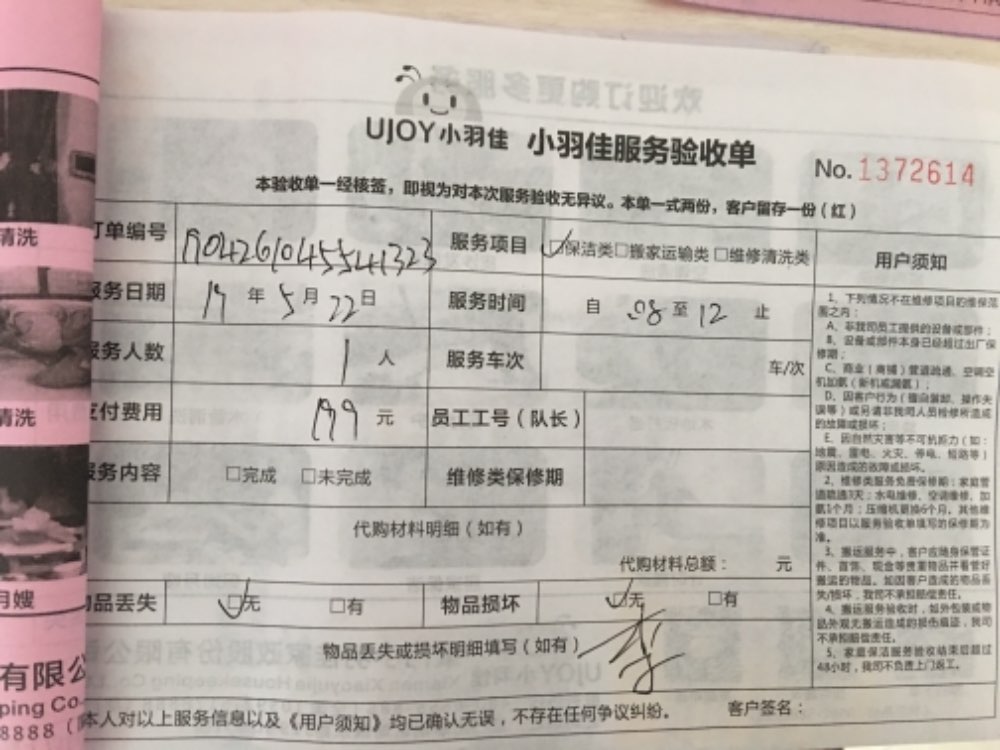 UJOY小羽佳 小羽佳服务验收单
No.1372614
本验收单一经核签，即视为对本次服务验收无异议。本单一式两份，客户留存一份（红）
订单编号 19042610455441323 服务项目 ☑保洁类□搬家运输类□维修清洗类
服务日期 19年5月22日 服务时间 自 08 至 12 止
服务人数 1人 服务车次 车/次
支付费用 199元 员工工号（队长）
服务内容 □完成 □未完成 维修类保修期
代购材料明细（如有）
代购材料总额： 元
物品丢失 ☑无 □有 物品损坏 ☑无 □有
物品丢失或损坏明细填写（如有）
李
本人对以上服务信息以及《用户须知》均已确认无误，不存在任何争议纠纷。 客户签名：
用户须知
1、下列情况不在维修项目的维保范
围之内：
A、非我司员工提供的设备或部件；
B、设备或部件本身已经超过出厂保
修期；
C、商业（商铺）管道疏通、空调空
机加氨（新机或漏氨）；
D、因客户行为（擅自装卸、操作失
误等）或另请非我司人员检修所造成
的故障或损坏；
E、因自然灾害等不可抗拒力（如：
地震、雷电、火灾、停电、短路等）
原因造成的故障或损坏。
2、维修类服务免费保修期：家庭管
道疏通3天；水电维修、空调维修、加
氨1个月；压缩机更换6个月。其他维
修项目以服务验收单填写的保修期为
准。
3、搬运服务中，客户应随身保管证
件、首饰、现金等贵重物品并看管好
搬运的物品。如因客户造成的物品丢
失/损坏，我司不承担赔偿责任。
4、搬运服务验收时，如外包装或物
品外观无搬运造成的损伤痕迹，我司
不承担赔偿责任。
5、家庭保洁服务验收结束后超过
48小时，我司不负责上门返工。
清洗
清洗
月嫂
有限公
ping Co
8888